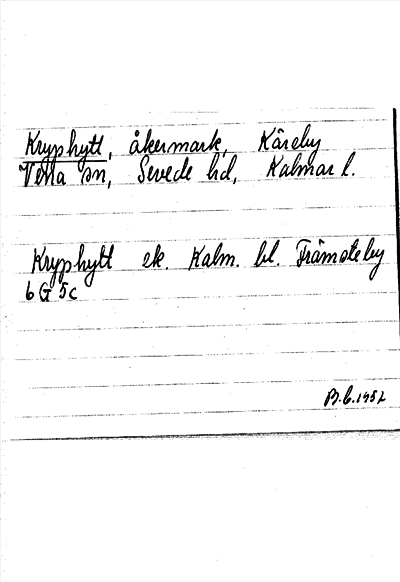 Kryphytt, åkermark, Kåreby
Vena sn, Sevede hd, Kalmar l.
Kryphytt ek. Kalm. bl. Främsteby
6 G 5c
B.C. 1952